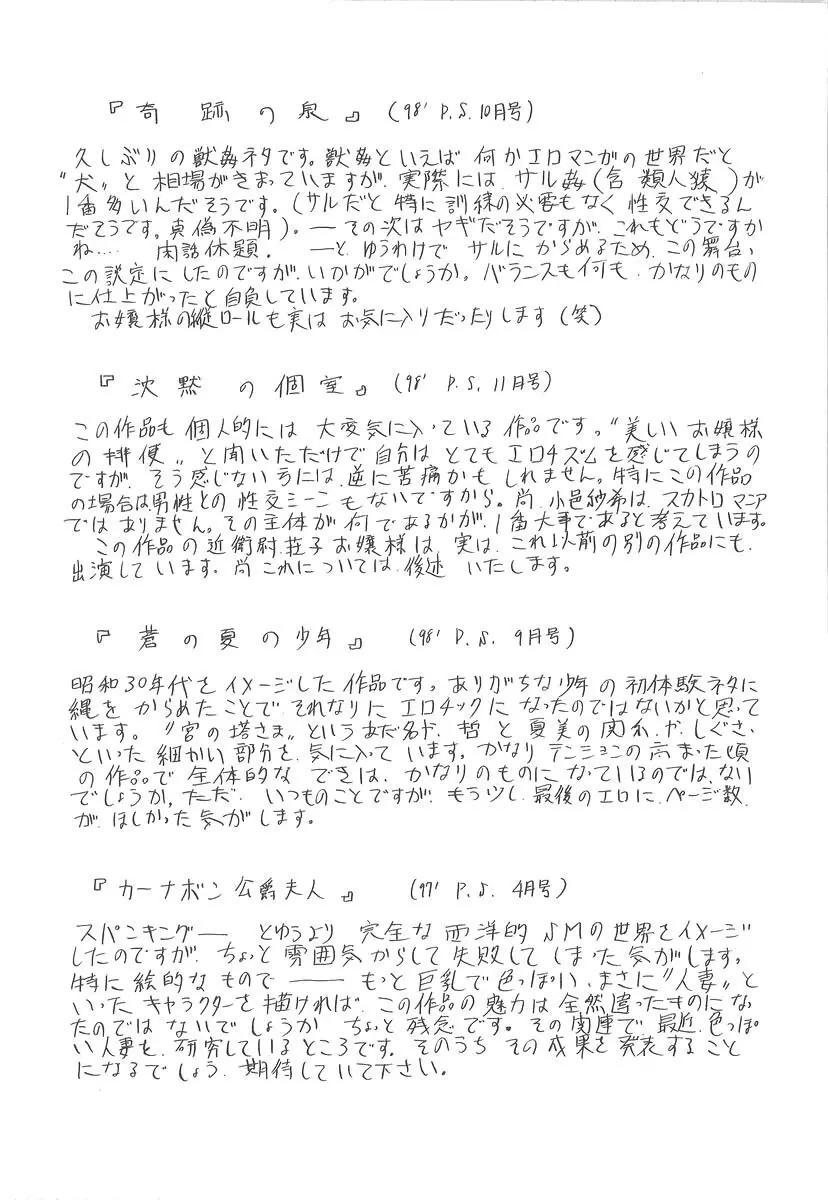 『奇跡の泉』 (98' P.S.10月号)
久しぶりの獣姦ネタです。獣姦といえば 何かエロマンガの世界だと
“犬”と相場がきまっていますが、実際には、サル姦(含 類人猿)が
1番多いんだそうです。(サルだと特に訓練の必要もなく性交できるん
だそうです。真偽不明)。—その次はヤギだそうですが、これもどうですか
ね…. 閑話休題. —と、ゆうわけで サルに からめるため、この舞台、
この設定にしたのですが、いかがでしょうか。バランスも何も、かなりのもの
に仕上がったと自負しています。
お嬢様の縦ロールも実は お気に入りだったりします(笑)
『沈黙の個室』 (98' P.S. 11月号)
この作品も 個人的には 大変気に入っている 作品です。“美しいお嬢様
の排便”と聞いただけで自分は とても エロチズムを感じてしまうの
ですが、そう感じない方には、逆に苦痛かもしれません。特にこの作品
の場合は男性との性交シーンもないですから。尚、小邑紗希は、スカトロマニア
ではありません。その主体が何であるかが、1番大事であると考えています。
この作品の近衛尉荘子お嬢様は、実は、これ以前の別の作品にも、
出演しています。尚これについては、後述いたします。
『蒼の夏の少年』 (98' P.S. 9月号)
昭和30年代をイメージした作品です。ありがちな少年の初体験ネタに
縄をからめたことで それなりに エロチックになったのではないかと思って
います。“宮の塔さま”というあだ名や、哲と夏美の関係や、しぐさ、
といった細かい部分を、気に入っています。かなりテンションの高まった頃
の作品で 全体的な できは、かなりのものになっているのでは、ない
でしょうか。ただ、いつものことですが、もう少し、最後のエロに、ページ数
が、ほしかった気がします。
『カーナボン公爵夫人』 (97' P.S. 4月号)
スパンキング— とゆうより 完全な西洋的SMの世界をイメージ
したのですが、ちょっと雰囲気からして失敗してしまった気がします。
特に絵的なもので——もっと巨乳で色っぽい、まさに“人妻”と
いったキャラクターを描ければ、この作品の魅力は全然違ったものになっ
たのではないでしょうか ちょっと残念です。その関連で、最近、色っぽ
い人妻を、研究しているところです。そのうち その成果を発表すること
になるでしょう、期待していて下さい。